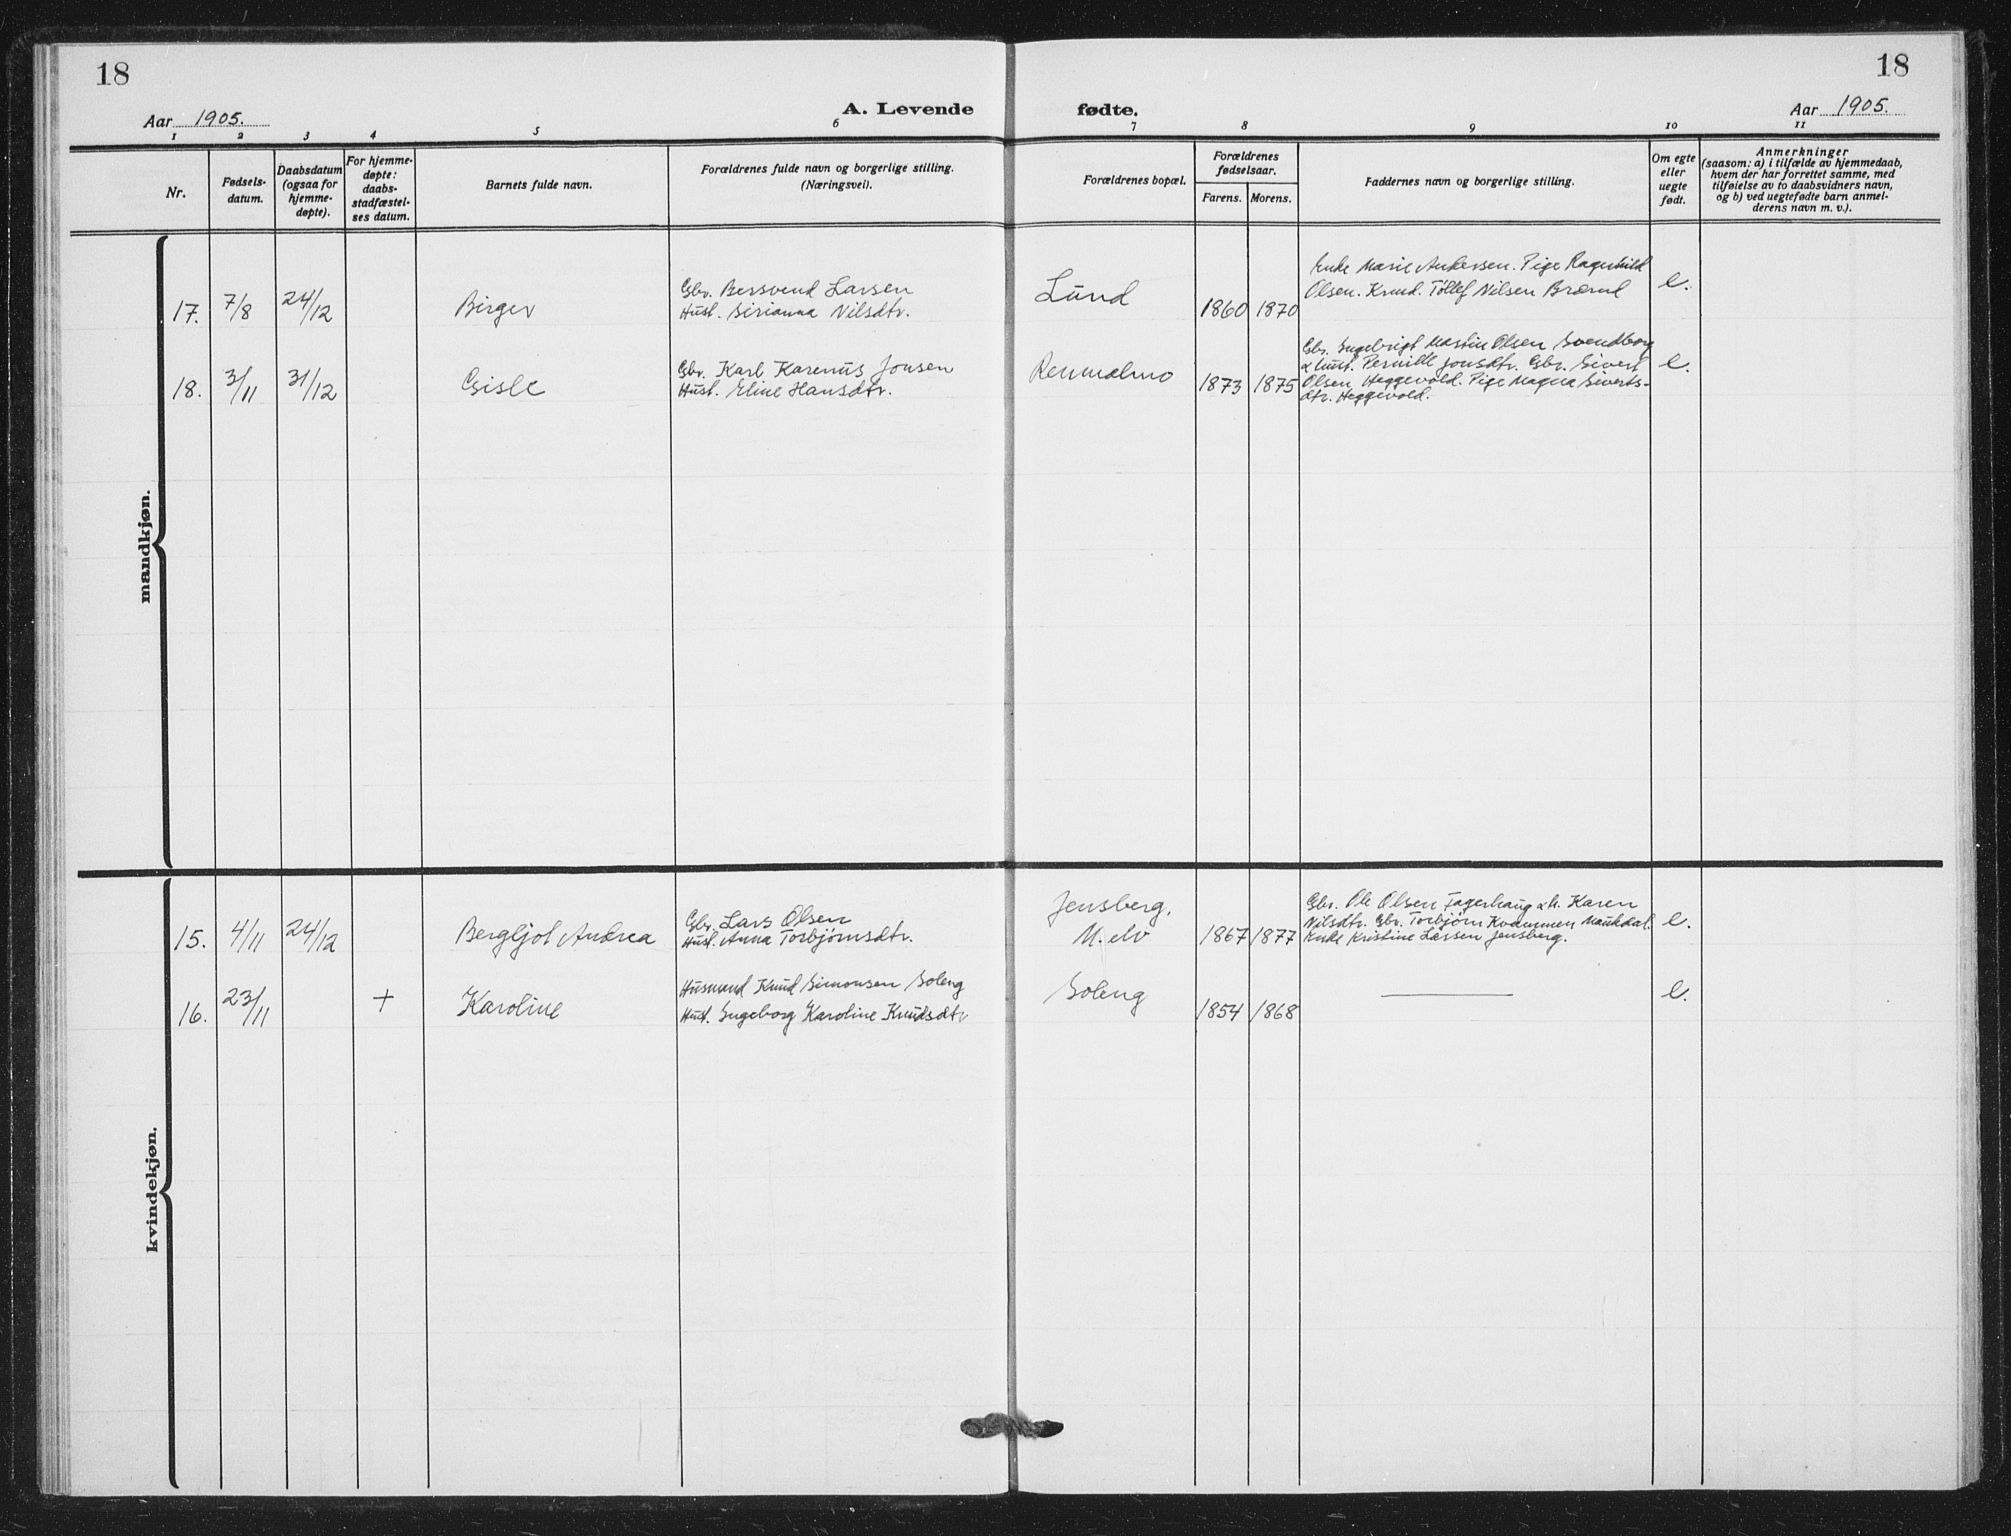 18
18
Aar 1905.
A. Levende fødte.
Aar 1905.
1 2 3 4 5 6 7 8 9 10 11
Nr.
Fødsels-
datum.
Daabsdatum
(ogsaa for
hjemme-
døpte).
For hjemme-
døpte:
daabs-
stadfæstel-
ses datum.
Barnets fulde navn.
Forældrenes fulde navn og borgerlige stilling.
(Næringsvei).
Forældrenes bopæl.
Forældrenes
fødselsaar.
Farens. Morens.
Faddernes navn og borgerlige stilling.
Om egte
eller
uegte
født.
Anmerkninger
(saasom: a) i tilfælde av hjemmedaab,
hvem der har forrettet samme, med
tilføielse av to daabsvidners navn,
og b) ved uegtefødte barn anmel-
derens navn m. v.).
mandkjøn.
17. 7/8 24/12 Birger
Gbr. Bersvend Larsen
Hust. Sirianna Nilsdtr.
Lund
1860 1870
Enke Marie Andersen. Pige Ragnhild
Olsen. Krmd. Tollef Nilsen Brærud
e.
18. 3/11 31/12 Gisle
Gbr. Karl Karenus Jonsen
Hust. Eline Hansdtr.
Renmælmo
1873 1875
Gbr. Ingebrigt Martin Olsen Svendborg
& hust. Pernille Jonsdtr. Gbr. Sivert
Olsen Heggevold. Pige Magna Siverts-
dtr. Heggevold.
e.
kvindekjøn.
15. 4/11 24/12 Bergljot Andrea
Gbr. Lars Olsen
Hust. Anna Torbjørnsdtr.
Jensberg,
M.elv
1867 1877
Gbr. Ole Olsen Fagerhaug & h. Karen
Nilsdtr. Gbr. Torbjørn Kvammen Maukdal.
Enke Kristine Larsen Jensberg.
e.
16. 23/11 + Karoline
Husmand Knud Simonsen Soleng
Hust. Ingeborg Karoline Knudsdtr
Soleng
1854 1868
e.